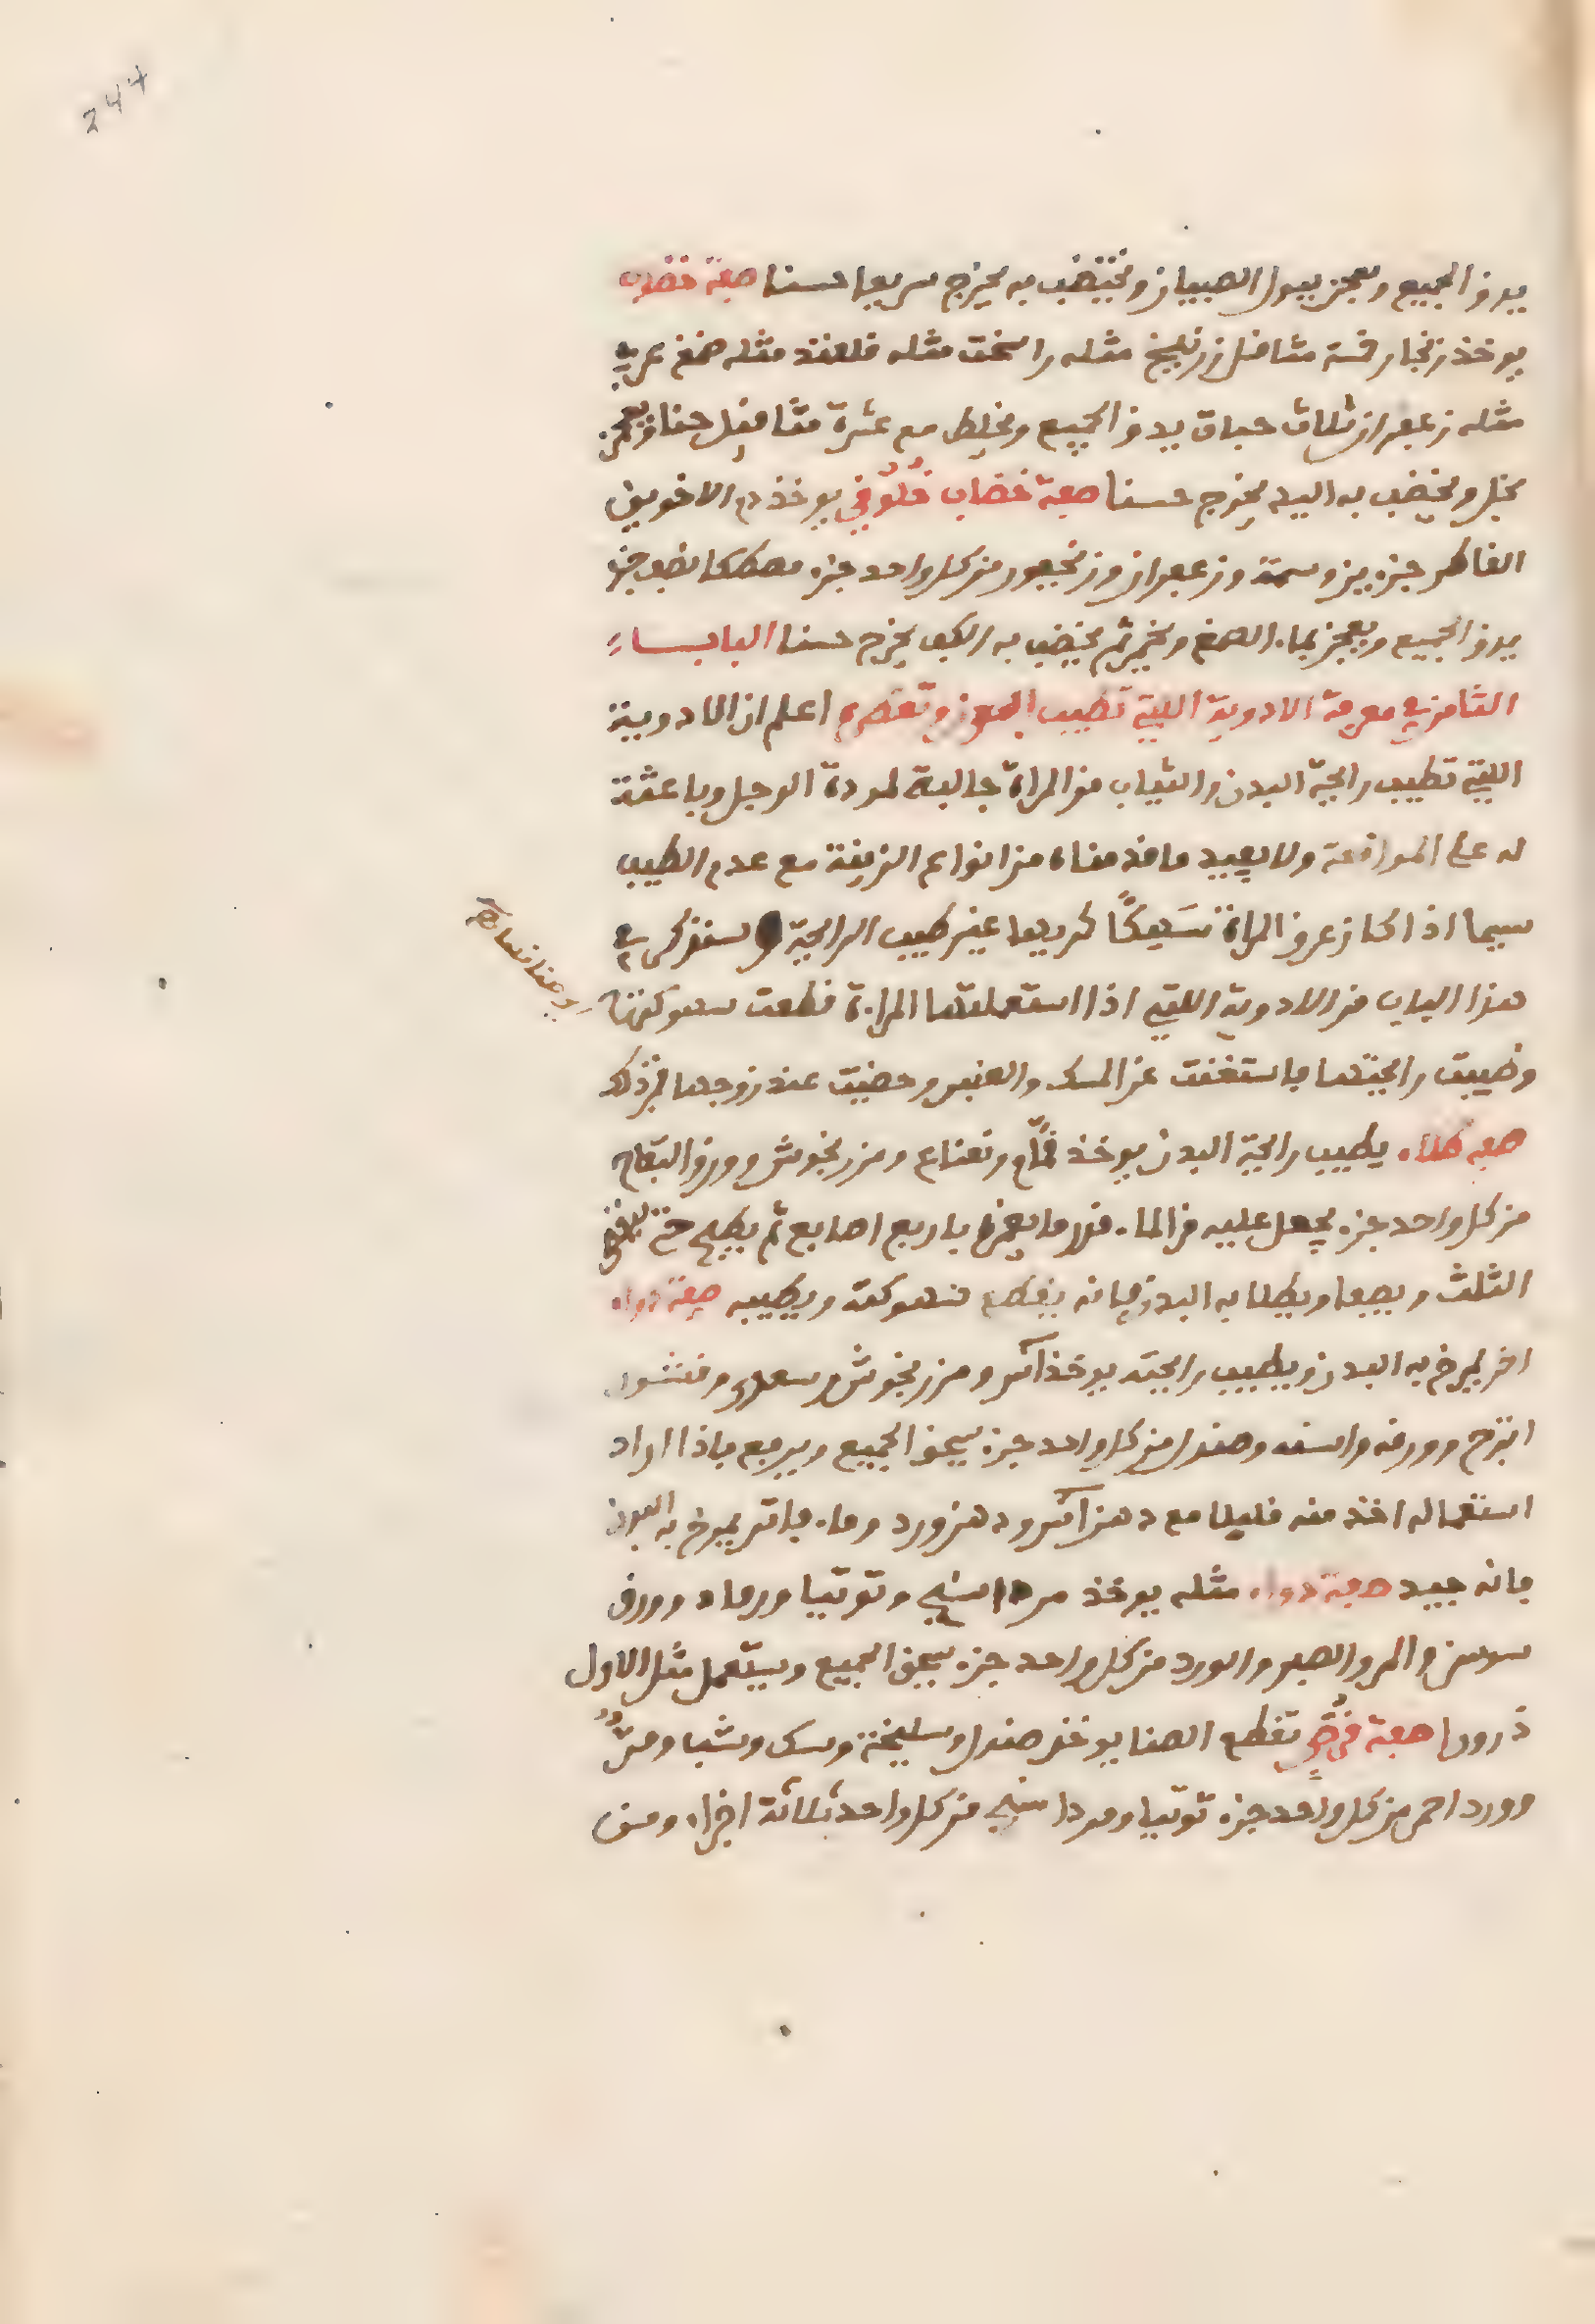 244
يدق الجميع ويعجن ببول الصبيان ويختضب به يخرج سريعا حسنا صفة خضاب
يوخذ زنجار خمسة مثاقيل زرنيخ مثله راسخت مثله قلقند مثله صمغ عربي
مثله زعفران ثلاث حبات يدق الجميع ويخلط مع عشرة مثاقيل حنا ويعجن
بخل ويخضب به اليد يخرج حسنا صفة خضاب خلوفي يوخذ دم الاخوين
القاطر جزءين وسمة وزعفران وزنجفور من كل واحد جزء مصطكا نصف جزء
يدق الجميع ويعجن بماء الصمغ ويخمر ثم يخضب به الكف يخرج حسنا الباب
الثامن في معرفة الادوية اللتي تطيب البدن وتعطره اعلم ان الادوية
اللتي تطيب رايحة البدن والثياب من المراة جالبة لمودة الرجل وباعثة
له على الموافعة ولا يفيد ما قدمناه من انواع الزينة مع عدم الطيب
سيما اذا كان عرق المراة سَهِكًا كريها غير طيب الرايحة وسنذكر في
هذا الباب من الادوية اللتي اذا استعملتها المراة قطعت سهوكتها
وطيبت رايحتها فاستغنت عن المسك والعنبر وحضيت عند زوجها فمن ذلك
صفة طلاء يطيب رايحة البدن يوخذ نمّام ونعناع ومرزنجوش وورق التفاح
من كل واحد جزء يجعل عليه من الماء قدر ما يغمره باربع اصابع ثم يطبخ حتى يبقى
الثلث ويصفا ويطلا به البدن فانه يقطع سهوكته ويطيبه صفة دواء
اخر يمرخ به البدن ويطيب رايحته يوخذ آس ومرزنجوش وسعد وقشور
اترج وورقه واشنه وصندل من كل واحد جزء يسحق الجميع ويرفع فاذا اراد
استعماله اخذ منه قليلا مع دهن آس ودهن ورد وماء فاتر يمرخ به البدن
فانه جيد صفة دواء مثله يوخذ مرداسنج وتوتيا ورماد وورق
سوسن والمر والصبر والورد من كل واحد جزء يسحق الجميع ويستعمل مثل الاول
ذرورا صفة قرص تقطع الصنا يوخذ صندل وسليخة وسك وشب ومرٌّ
وورد احمر من كل واحد جزء توتيا ومرداسنج من كل واحد ثلاثة اجزاء ومن